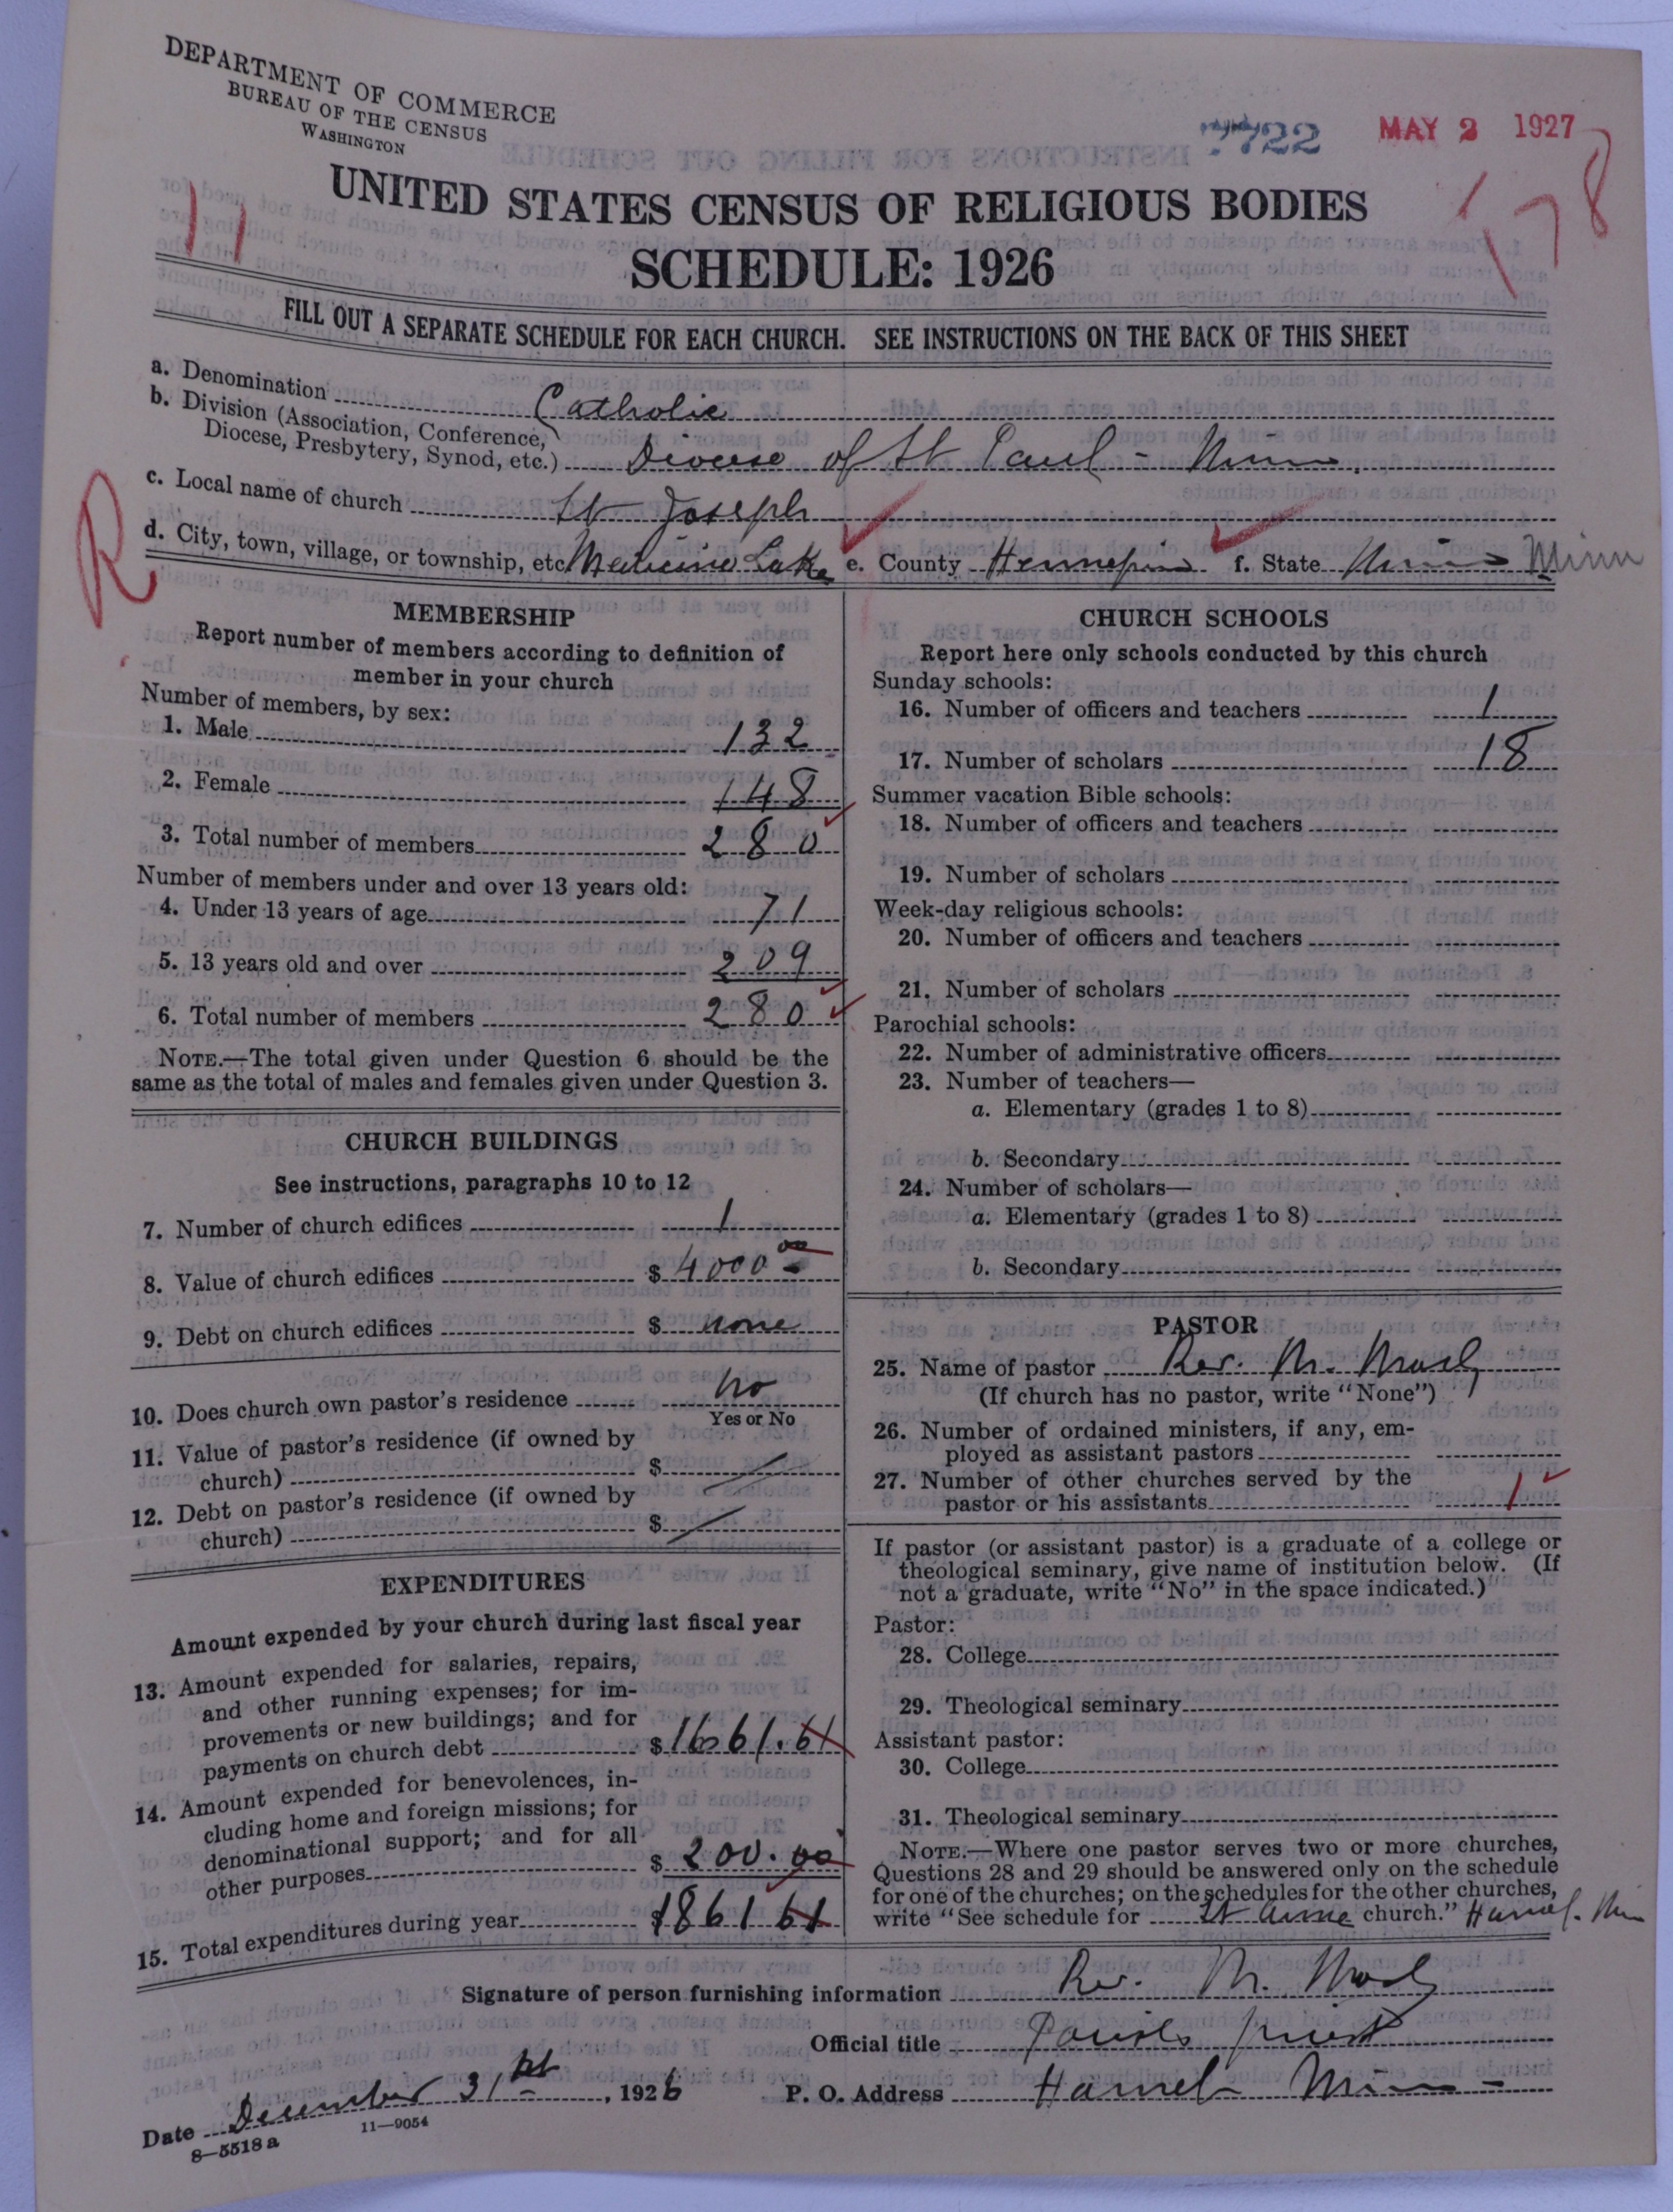 DEPARTMENT OF COMMERCE
BUREAU OF THE CENSUS
WASHINGTON
MAY 2 1927
11
178
UNITED STATES CENSUS OF RELIGIOUS BODIES
SCHEDULE: 1926
FILL OUT A SEPARATE SCHEDULE FOR EACH CHURCH. SEE INSTRUCTIONS ON THE BACK OF THIS SHEET
a. Denomination Catholic
b. Division (Association, Conference,
Diocese, Presbytery, Synod, etc.) Diocese of St Paul - Minn.
c. Local name of church St Joseph
R
d. City, town, village, or township, etc Medicine Lake e. County Hennepin f. State Minn Minn
MEMBERSHIP
Report number of members according to definition of
member in your church
Number of members, by sex:
1. Male 132
2. Female 148
3. Total number of members 280
Number of members under and over 13 years old:
4. Under 13 years of age 71
5. 13 years old and over 209
6. Total number of members 280
NOTE.—The total given under Question 6 should be the
same as the total of males and females given under Question 3.
CHURCH BUILDINGS
See instructions, paragraphs 10 to 12
7. Number of church edifices 1
8. Value of church edifices $ 4000 00
9. Debt on church edifices $ none
10. Does church own pastor's residence no
Yes or No
11. Value of pastor's residence (if owned by
church) $
12. Debt on pastor's residence (if owned by
church) $
EXPENDITURES
Amount expended by your church during last fiscal year
13. Amount expended for salaries, repairs,
and other running expenses; for im-
provements or new buildings; and for
payments on church debt $ 1661.61
14. Amount expended for benevolences, in-
cluding home and foreign missions; for
denominational support; and for all
other purposes $ 200.00
15. Total expenditures during year $ 1861 61
CHURCH SCHOOLS
Report here only schools conducted by this church
Sunday schools:
16. Number of officers and teachers 1
17. Number of scholars 18
Summer vacation Bible schools:
18. Number of officers and teachers
19. Number of scholars
Week-day religious schools:
20. Number of officers and teachers
21. Number of scholars
Parochial schools:
22. Number of administrative officers
23. Number of teachers—
a. Elementary (grades 1 to 8)
b. Secondary
24. Number of scholars—
a. Elementary (grades 1 to 8)
b. Secondary
PASTOR
25. Name of pastor Rev. M.
(If church has no pastor, write "None")
26. Number of ordained ministers, if any, em-
ployed as assistant pastors
27. Number of other churches served by the
pastor or his assistants 1
If pastor (or assistant pastor) is a graduate of a college or
theological seminary, give name of institution below. (If
not a graduate, write "No" in the space indicated.)
Pastor:
28. College
29. Theological seminary
Assistant pastor:
30. College
31. Theological seminary
NOTE.—Where one pastor serves two or more churches,
Questions 28 and 29 should be answered only on the schedule
for one of the churches; on the schedules for the other churches,
write "See schedule for St Anne church." Hamel. Min
Signature of person furnishing information Rev. M.
Official title Parish priest
P. O. Address Hamel Minn -
Date December 31st, 1926
8—5518a
11—9054